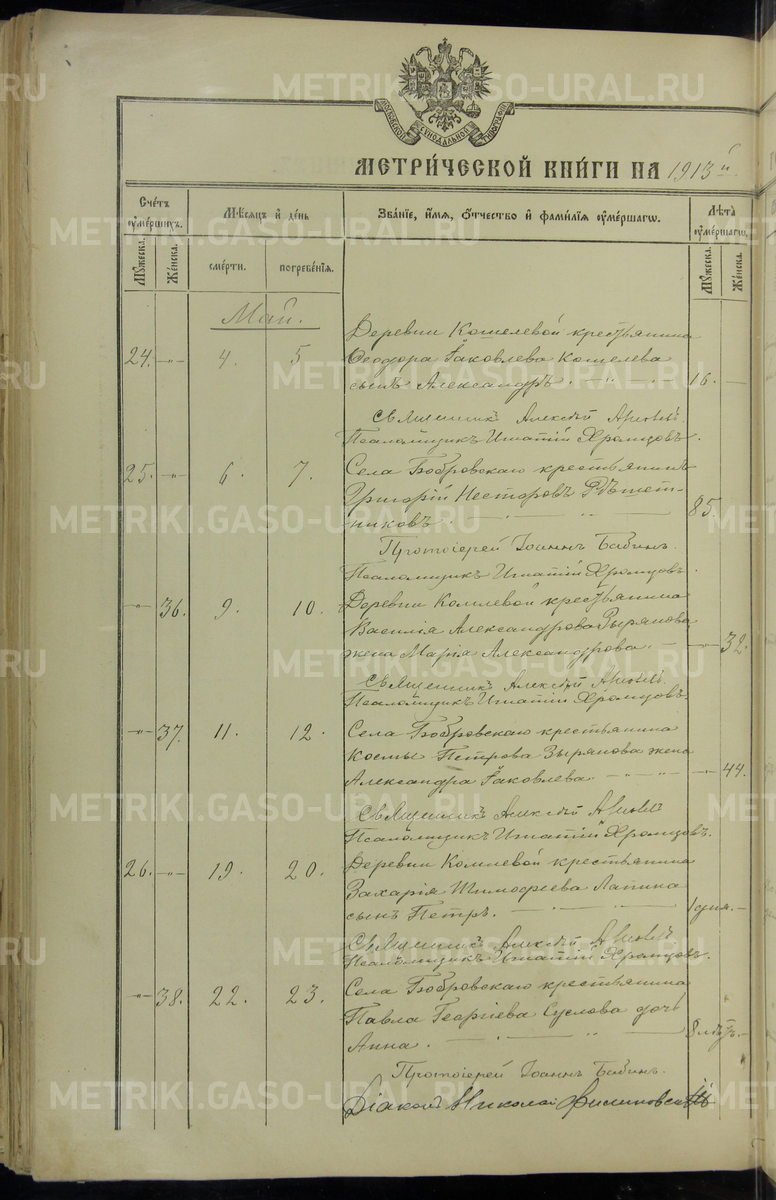 МОСКОВСКОЙ СѴНОДАЛЬНОЙ ТИПОГРАФІИ
МЕТРИ́ЧЕСКОЙ КНИ́ГИ НА 1913 й.
Сче́тъ ᲂу҆ме́ршихъ.
Мꙋ́жеска.
Же́нска.
Мѣ́сяцъ и҆ де́нь
сме́рти.
погребе́нїѧ.
Зва́нїе, и҆́мѧ, ѻ҆́тчество и҆ фами́лїѧ ᲂу҆ме́ршагѡ.
Лѣ́та ᲂу҆ме́ршагѡ.
Мꙋ́жеска.
Же́нска.
Май.
Деревни Кошелевой крестьянина
24. —"— 4. 5 Ѳеодора Іаковлева Кошелева
сынъ Александръ. 16. —
Священникъ Алексѣй
Псаломщикъ Игнатій Хромцовъ.
25. —"— 6. 7. Села Бобровскаго крестьянинъ
Григорій Несторовъ Рѣшет-
никовъ. 85.
Протоіерей Іоаннъ Бабинъ.
Псаломщикъ Игнатій Хромцовъ.
—"— 36. 9. 10. Деревни Комлевой крестьянина
Василія Александрова Зырянова
жена Марія Александрова. — 32.
Священникъ Алексѣй
Псаломщикъ Игнатій Хромцовъ.
—"— 37. 11. 12. Села Бобровскаго крестьянина
Космы Петрова Зырянова жена
Александра Іаковлева. — 44.
Священникъ Алексѣй
Псаломщикъ Игнатій Хромцовъ.
26. —"— 19. 20. Деревни Комлевой крестьянина
Захарія Тимофеева Лапина
сынъ Петръ. 1 дня. —
Священникъ Алексѣй
Псаломщикъ Игнатій Хромцовъ.
—"— 38. 22. 23. Села Бобровскаго крестьянина
Павла Георгіева Суслова дочь
Анна. 8 лѣтъ. —
Протоіерей Іоаннъ Бабинъ.
Діаконъ Николай
METRIKI.GASO-URAL.RU